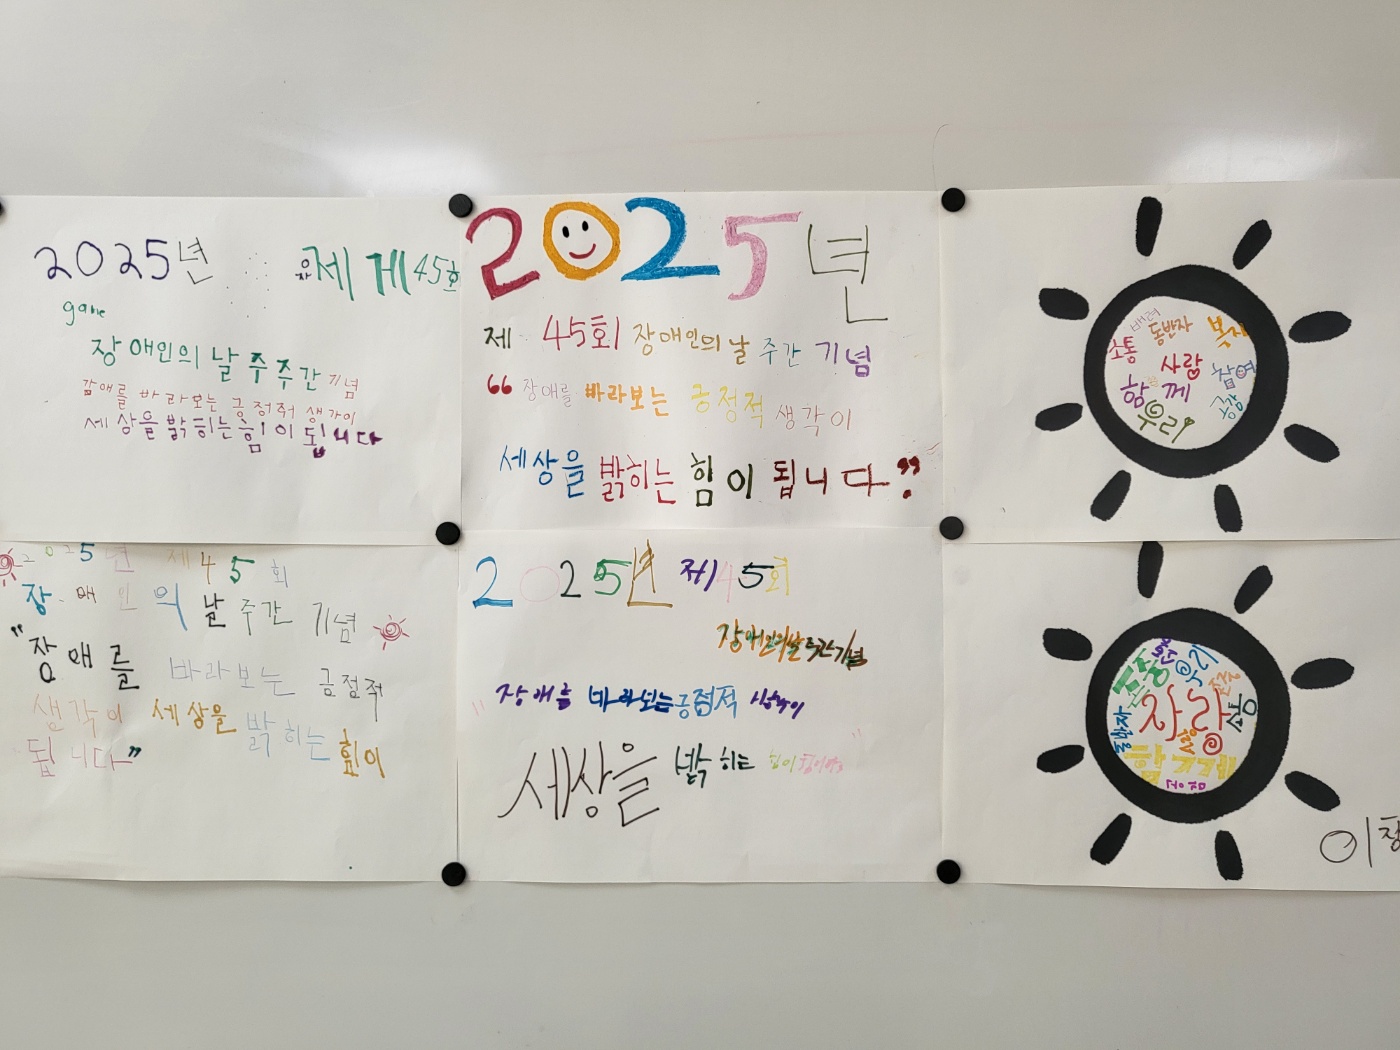 2025년 제 게 45회
game
장애인의 날 주주간 기념
감애를 바라보는 긍정적 생각이
세상을 밝히는 힘이 됩니다
2025년
제 45회 장애인의 날 주간 기념
“장애를 바라보는 긍정적 생각이
세상을 밝히는 힘이 됩니다”
배려
동반자
복지
소통
사람
참여
함께
우리
2025년 제45회
장애인의 날 주간 기념
"장애를 바라보는 긍정적
생각이 세상을 밝히는 힘이
됩니다"
2025년 제45회
장애인의날 주간기념
"장애를 바라보는긍정적 생각이
세상을 밝히는
우리
존중
사랑
동반자
함께